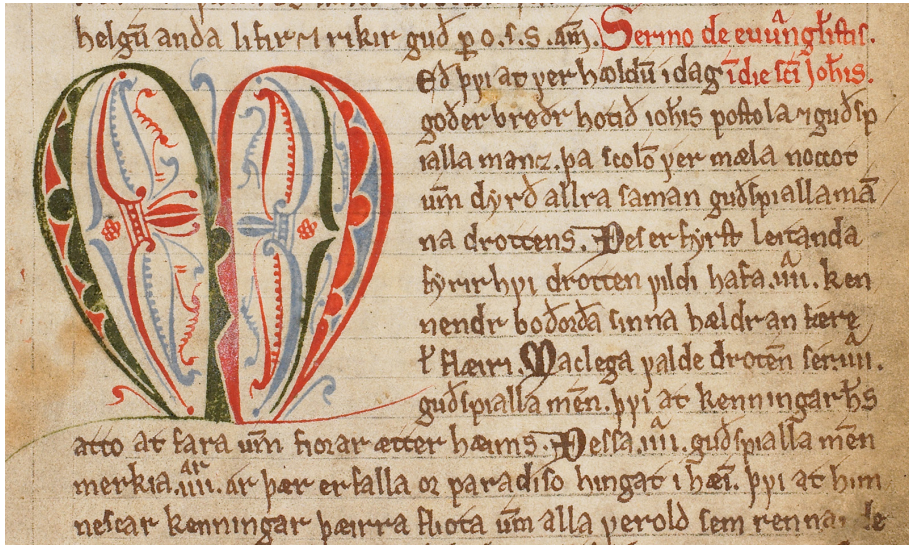 helgū anda lifir ⁊ rikir guð ꝑ o. ſ. s. am̄. Sermo de euūngłiſtis.
Með þvi at ver hældū i dag ī die sc̄i Joh̄is.
goðer brøðr hotið ioh̄is poſtola ⁊ guðſp
ialla manz. þa ſcolō ver mæla noccot
um̄ dyrð allra ſaman guðſpialla mā
na drottens. Þes er fyrſt leitanda
fyrir hvi drotten vildi hafa .iiii. ken
nendr boðorða ſinna hældr an færę
ł flæiri. Maclega valde drotēn ſer .iiii.
guðſpialla mēn. þvi at kenningar h̄s
atto at fara um̄ fiorar ætter hæims. Þeſſa .iiii. guðſpialla mēn
merkia .iiii. ar þær er falla or paradiſo hingat i hæī. þvi at him
neſcar kenningar þæirra fliota um̄ alla verold ſem renna